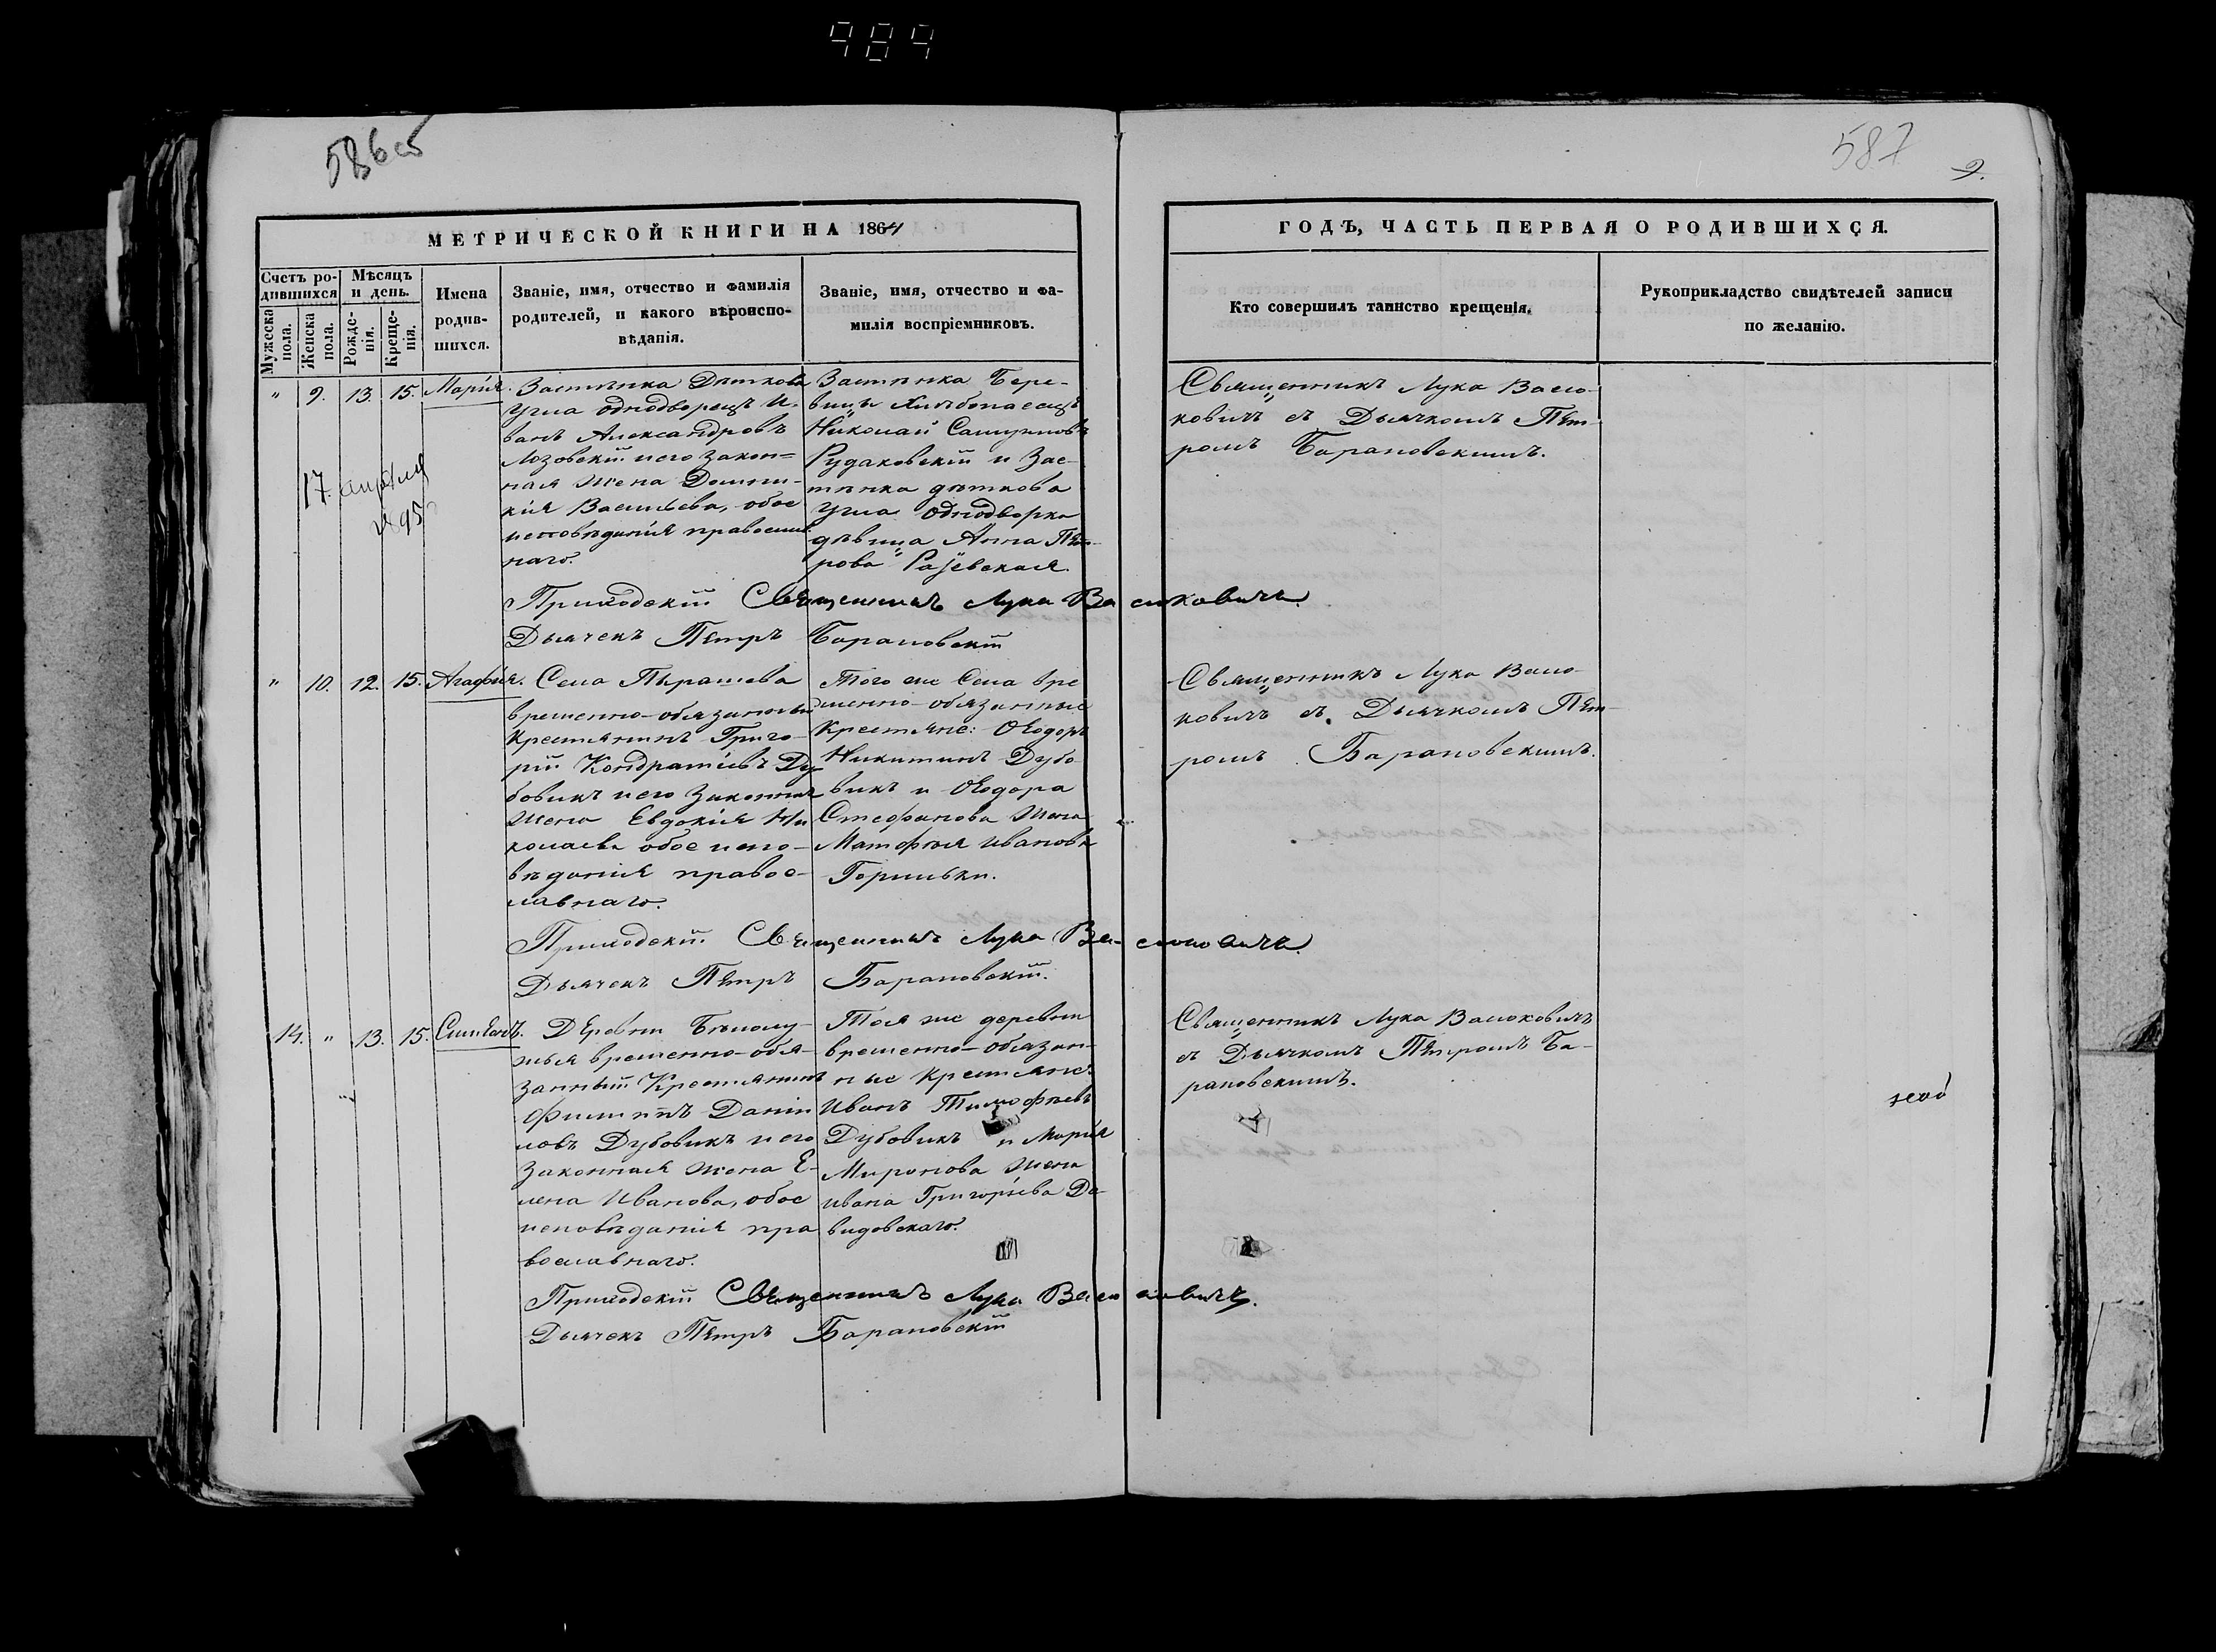 984
586об
587
9.
МЕТРИЧЕСКОЙ КНИГИ НА 1864
ГОДЪ, ЧАСТЬ ПЕРВАЯ О РОДИВШИХСЯ.
Счетъ ро-
дившихся
Мужеска
пола.
Женска
пола.
Мѣсяцъ
и день.
Рожде-
нія.
Креще-
нія.
Имена
родив-
шихся.
Званіе, имя, отчество и фамилія
родителей, и какого вѣроиспо-
вѣданія.
Званіе, имя, отчество и фа-
милія воспріемниковъ.
Кто совершилъ таинство крещенія.
Рукоприкладство свидѣтелей записи
по желанію.
" 9. 13. 15. Марія.
17. апрѣля
1895
Застѣнка Дѣткова
Угла однодворецъ И-
ванъ Александровъ
Лозовскій и его закон=
ная жена Домни-
кія Васильева, обое
исповѣданія православ
наго.
Застѣнка Бере-
вицы Хлѣбопашецъ
Николай
Рудаковскій и Зас-
тѣнка дѣткова
Угла Однодворка
дѣвица Анна Пет-
рова Раіевская.
Священникъ Лука Васю-
ковичъ съ Дьячкомъ Пет-
ромъ Барановскимъ.
Приходскій Священникъ Лука Васюковичъ.
Дьячекъ Петръ Барановскій
" 10. 12. 15. Агафія.
Села Пырашева
временно-обязанный
Крестянинъ Григо-
рій Кондратіевъ Ду
бовикъ и его Законная
жена Евдокія Ни
колаева обое испо-
вѣданія правос-
лавнаго.
Того же Села вре
менно-обязанные
Крестяне: Ѳеодоръ
Никитинъ Дубо
викъ и Ѳеодора
Стефанова жена
Матфѣя Иванова
Священникъ Лука Васю-
ковичъ съ Дьячкомъ Пет-
ромъ Барановскимъ.
Приходскій Священникъ Лука Васюковичъ.
Дьячекъ Петръ Барановскій.
14. " 13. 15. Симеонъ.
Деревни Бѣлолу-
жья временно-обя-
занный Крестянинъ
Филиппъ Даніи
ловъ Дубовикъ и его
Законная жена Е-
лена Иванова, обое
исповѣданія пра
вославнаго.
Тоя же деревни
временно-обязан-
ные Крестяне:
Иванъ Тимофѣевъ
Дубовикъ и Марія
Миронова жена
Ивана Григорьева Да
видовскаго.
Священникъ Лука Васюковичъ
съ Дьячкомъ Петромъ Ба-
рановскимъ.
Приходскій Священникъ Лука Васюковичъ.
Дьячекъ Петръ Барановскій